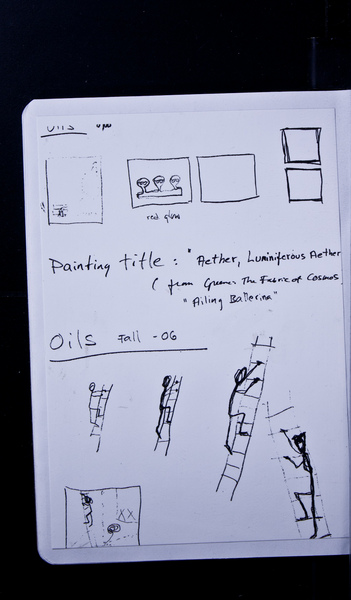 Oils
red glow
Painting title : "Aether, Luminiferous Aether
( from Greene's The Fabric of Cosmos
"Ailing Ballerina"
Oils Fall -06
XX